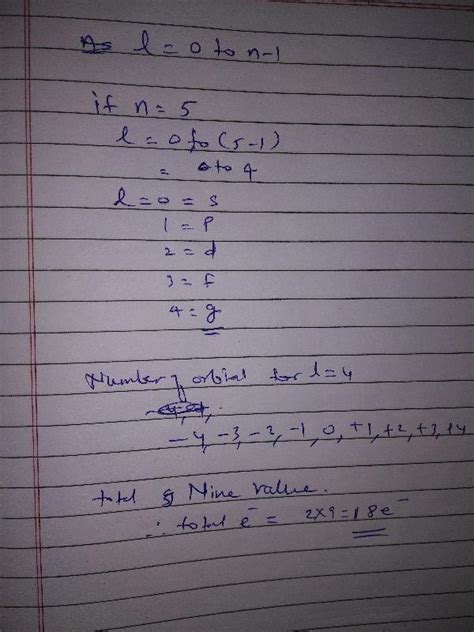 As l = 0 to n-1
if n = 5
l = 0 to (5-1)
= 0 to 4
l = 0 = s
1 = p
2 = d
3 = f
4 = g
Number of orbital for l=4
-4, -3, -2, -1, 0, +1, +2, +3, +4
total Nine value.
∴ total e⁻ = 2×9=18e⁻